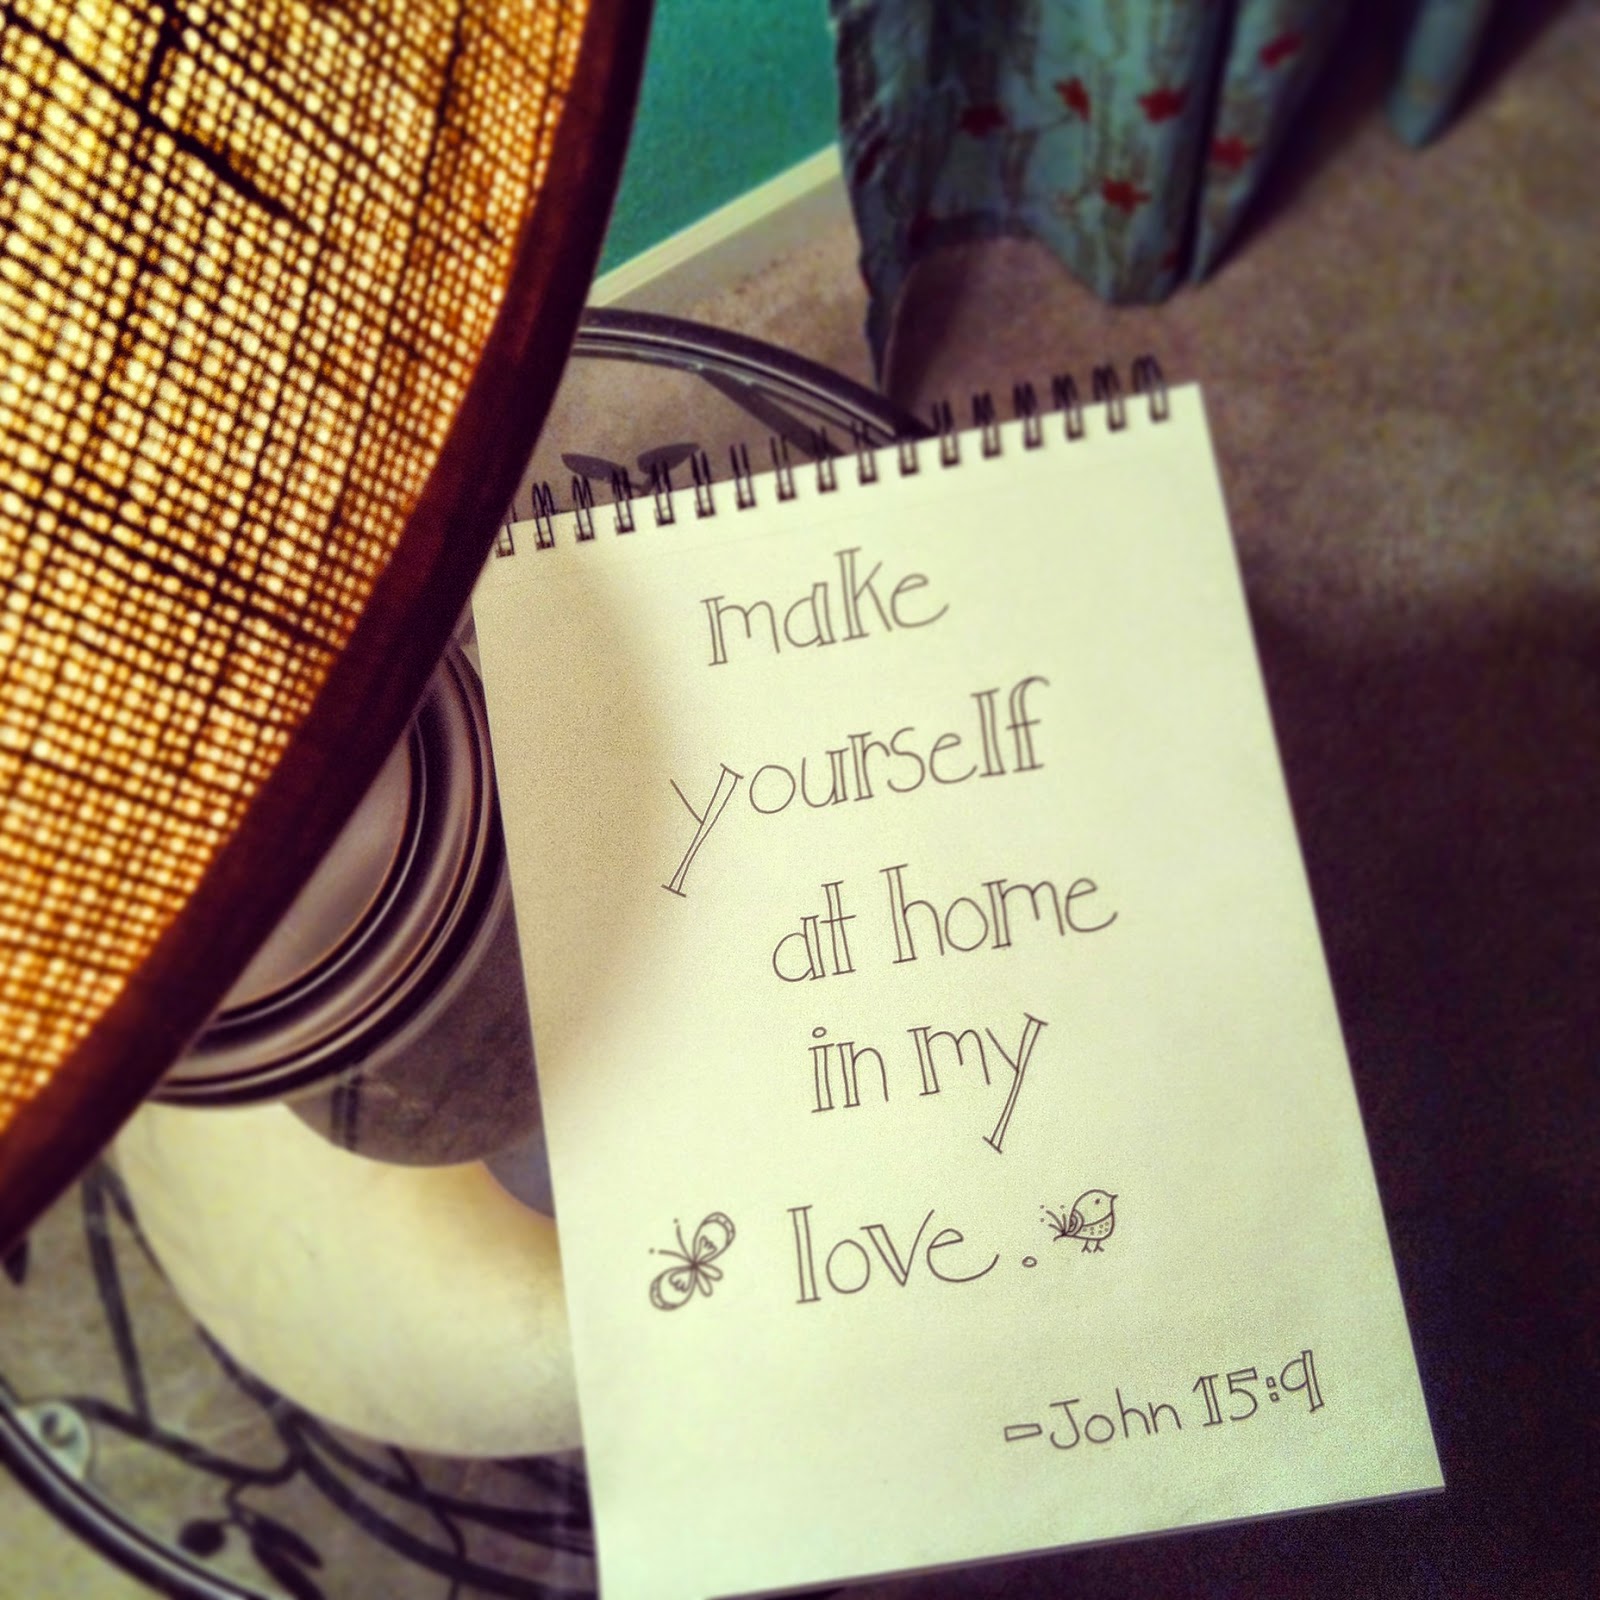 make
yourself
at home
in my
love.
-John 15:9